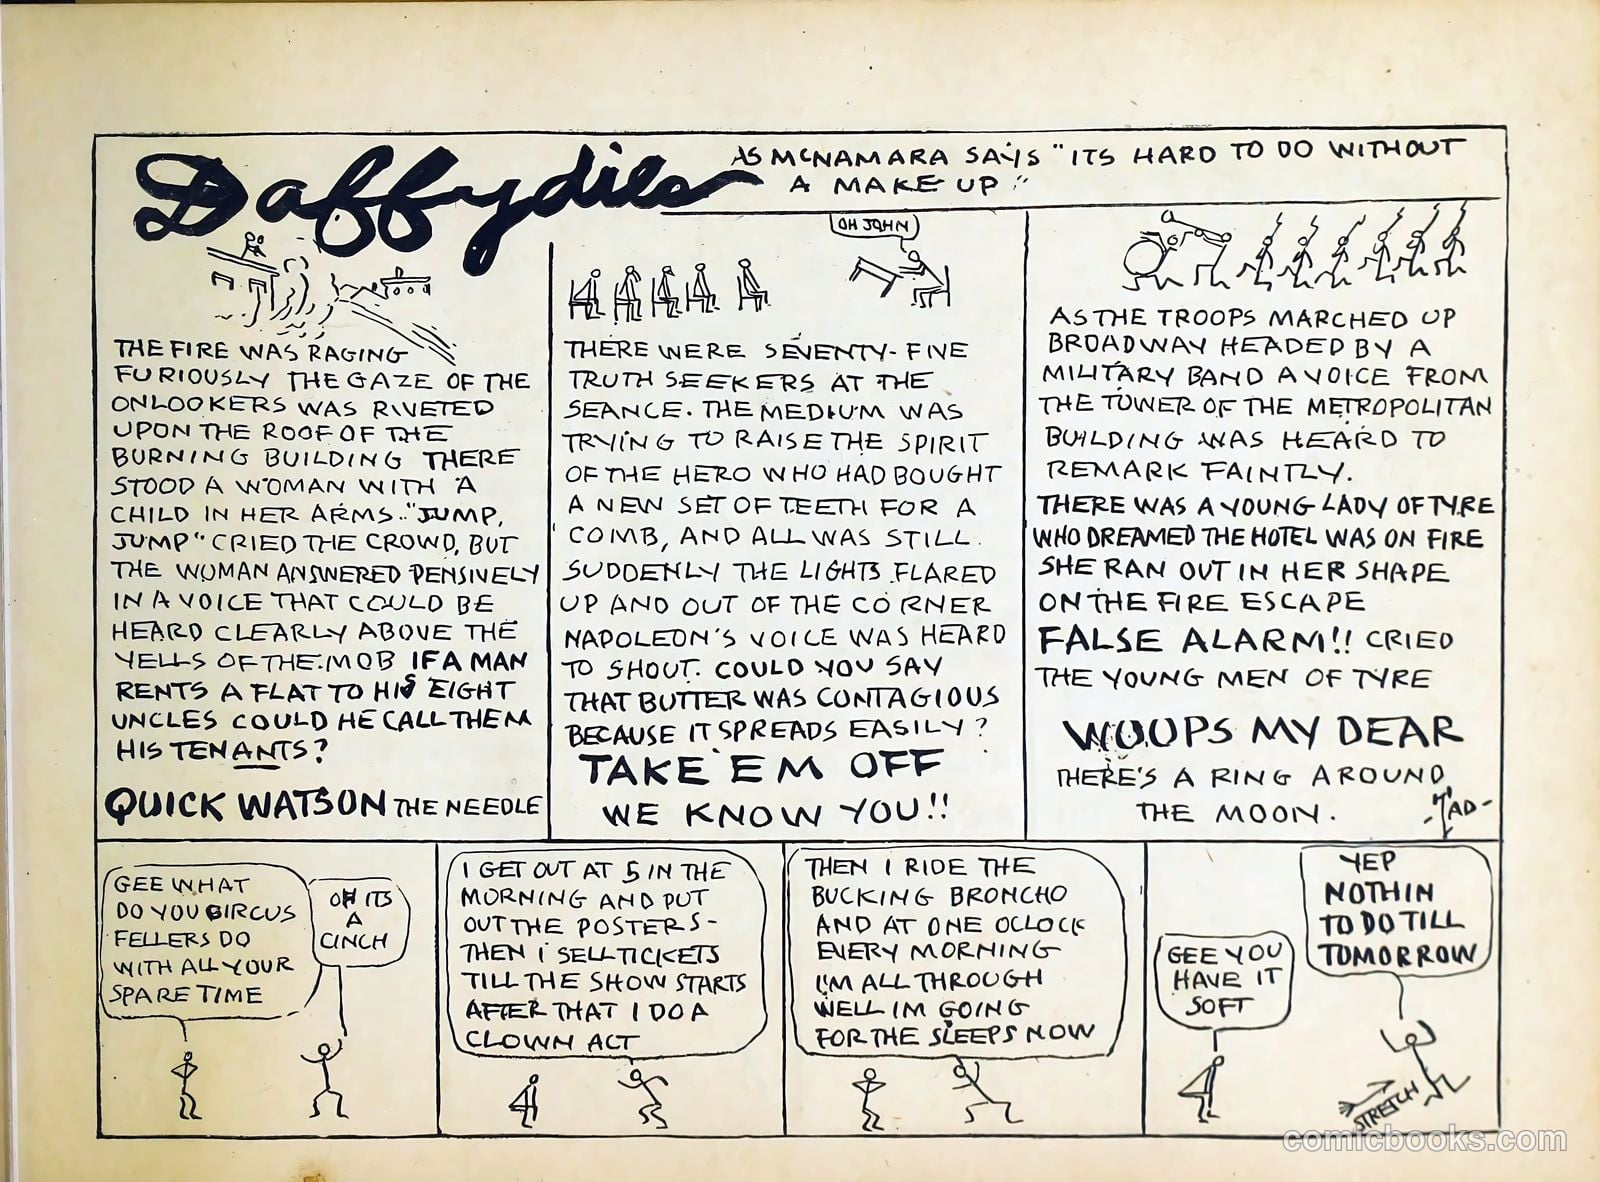 Daffydils
AS MCNAMARA SAYS "ITS HARD TO DO WITHOUT
A MAKE UP"
THE FIRE WAS RAGING
FURIOUSLY THE GAZE OF THE
ONLOOKERS WAS RIVETED
UPON THE ROOF OF THE
BURNING BUILDING THERE
STOOD A WOMAN WITH A
CHILD IN HER ARMS. "JUMP,
JUMP" CRIED THE CROWD, BUT
THE WOMAN ANSWERED PENSIVELY
IN A VOICE THAT COULD BE
HEARD CLEARLY ABOVE THE
YELLS OF THE MOB IF A MAN
RENTS A FLAT TO HIS EIGHT
UNCLES COULD HE CALL THEM
HIS TENANTS?
QUICK WATSON THE NEEDLE
OH JOHN
THERE WERE SEVENTY-FIVE
TRUTH SEEKERS AT THE
SEANCE. THE MEDIUM WAS
TRYING TO RAISE THE SPIRIT
OF THE HERO WHO HAD BOUGHT
A NEW SET OF TEETH FOR A
COMB, AND ALL WAS STILL.
SUDDENLY THE LIGHTS FLARED
UP AND OUT OF THE CORNER
NAPOLEON'S VOICE WAS HEARD
TO SHOUT. COULD YOU SAY
THAT BUTTER WAS CONTAGIOUS
BECAUSE IT SPREADS EASILY?
TAKE 'EM OFF
WE KNOW YOU!!
AS THE TROOPS MARCHED UP
BROADWAY HEADED BY A
MILITARY BAND A VOICE FROM
THE TOWER OF THE METROPOLITAN
BUILDING WAS HEARD TO
REMARK FAINTLY.
THERE WAS A YOUNG LADY OF TYRE
WHO DREAMED THE HOTEL WAS ON FIRE
SHE RAN OUT IN HER SHAPE
ON THE FIRE ESCAPE
FALSE ALARM!! CRIED
THE YOUNG MEN OF TYRE
WOOPS MY DEAR
THERE'S A RING AROUND
THE MOON.
-TAD-
GEE WHAT
DO YOU CIRCUS
FELLERS DO
WITH ALL YOUR
SPARE TIME
OH ITS
A
CINCH
I GET OUT AT 5 IN THE
MORNING AND PUT
OUT THE POSTERS-
THEN I SELL TICKETS
TILL THE SHOW STARTS
AFTER THAT I DO A
CLOWN ACT
THEN I RIDE THE
BUCKING BRONCHO
AND AT ONE OCLOCK
EVERY MORNING
I'M ALL THROUGH
WELL IM GOING
FOR THE SLEEPS NOW
GEE YOU
HAVE IT
SOFT
YEP
NOTHIN
TO DO TILL
TOMORROW
STRETCH
comicbooks.com